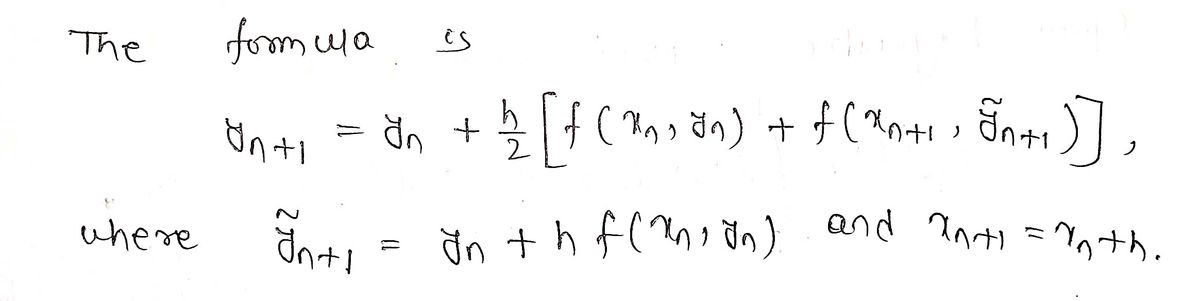 The formula is
y_{n+1} = y_n + \frac{h}{2} [ f(x_n, y_n) + f(x_{n+1}, ỹ_{n+1}) ],
where ỹ_{n+1} = y_n + h f(x_n, y_n) and x_{n+1} = x_n + h.